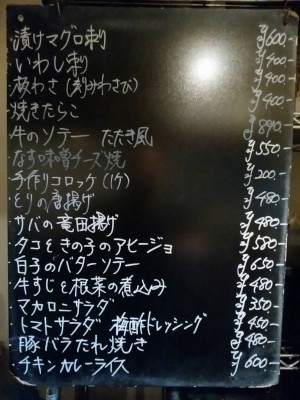 ・漬けマグロ刺 ¥600-
・いわし刺 ¥400-
・板わさ(刻みわさび) ¥400-
・焼きたらこ ¥400-
・牛のソテー たたき風 ¥890-
・なす味噌チーズ焼 ¥550-
・手作りコロッケ(1ケ) ¥200-
・とりの唐揚げ ¥480-
・サバの竜田揚げ ¥480-
・タコときの子のアヒージョ ¥580-
・白子のバターソテー ¥650-
・牛すじと根菜の煮込み ¥480-
・マカロニサラダ ¥350-
・トマトサラダ 梅酢ドレッシング ¥450-
・豚バラたれ焼き ¥480-
・チキンカレーライス ¥600-